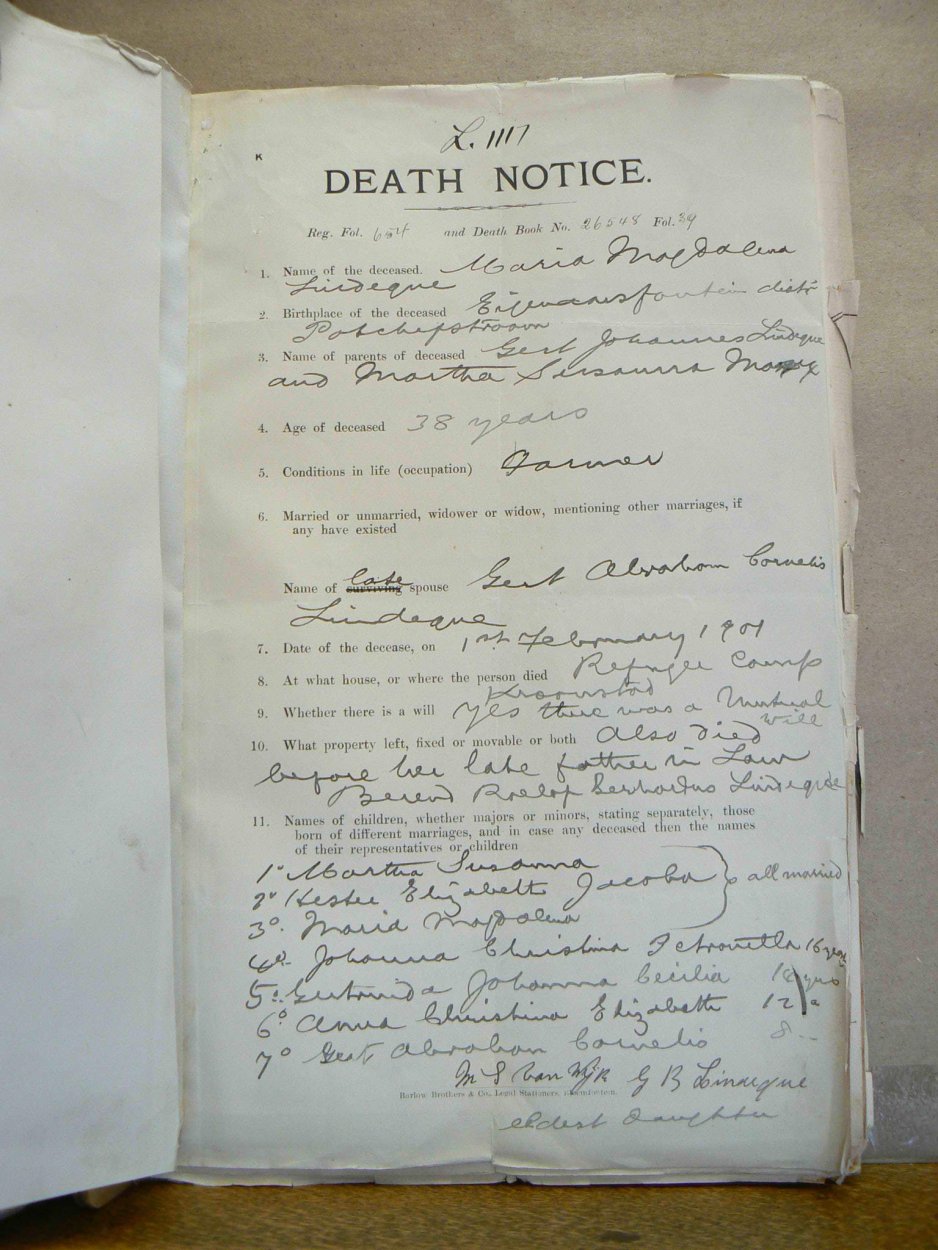 L. 1117
K
DEATH NOTICE.
Reg. Fol. 654 and Death Book No. 26548 Fol. 39
1. Name of the deceased. Maria Magdalena
Lindeque
2. Birthplace of the deceased distr
Potchefstroom
3. Name of parents of deceased Gert Johannes Lindeque
and Martha Susanna
4. Age of deceased 38 years
5. Conditions in life (occupation) Farmer
6. Married or unmarried, widower or widow, mentioning other marriages, if
any have existed
late
Name of surviving spouse Gert Abraham Cornelis
Lindeque
7. Date of the decease, on 1st February 1901
8. At what house, or where the person died Refugee Camp
Kroonstad
9. Whether there is a will Yes there was a Mutual
Will
10. What property left, fixed or movable or both Also died
before her late father in Law
Berend Roelof Gerhardus Lindeque
11. Names of children, whether majors or minors, stating separately, those
born of different marriages, and in case any deceased then the names
of their representatives or children
1o Martha Susanna
2o Hester Elizabeth Jacoba all married
3o. Maria Magdalena
4o. Johanna Christina Petronella 16 years
5o. Gertruida Johanna Cecilia yrs
6o Anna Christina Elizabeth 12 "
7o Gert Abraham Cornelis 8 "
M S van Wijk G B Lindeque
Barlow Brothers & Co., Legal Stationers, Bloemfontein.
eldest daughter